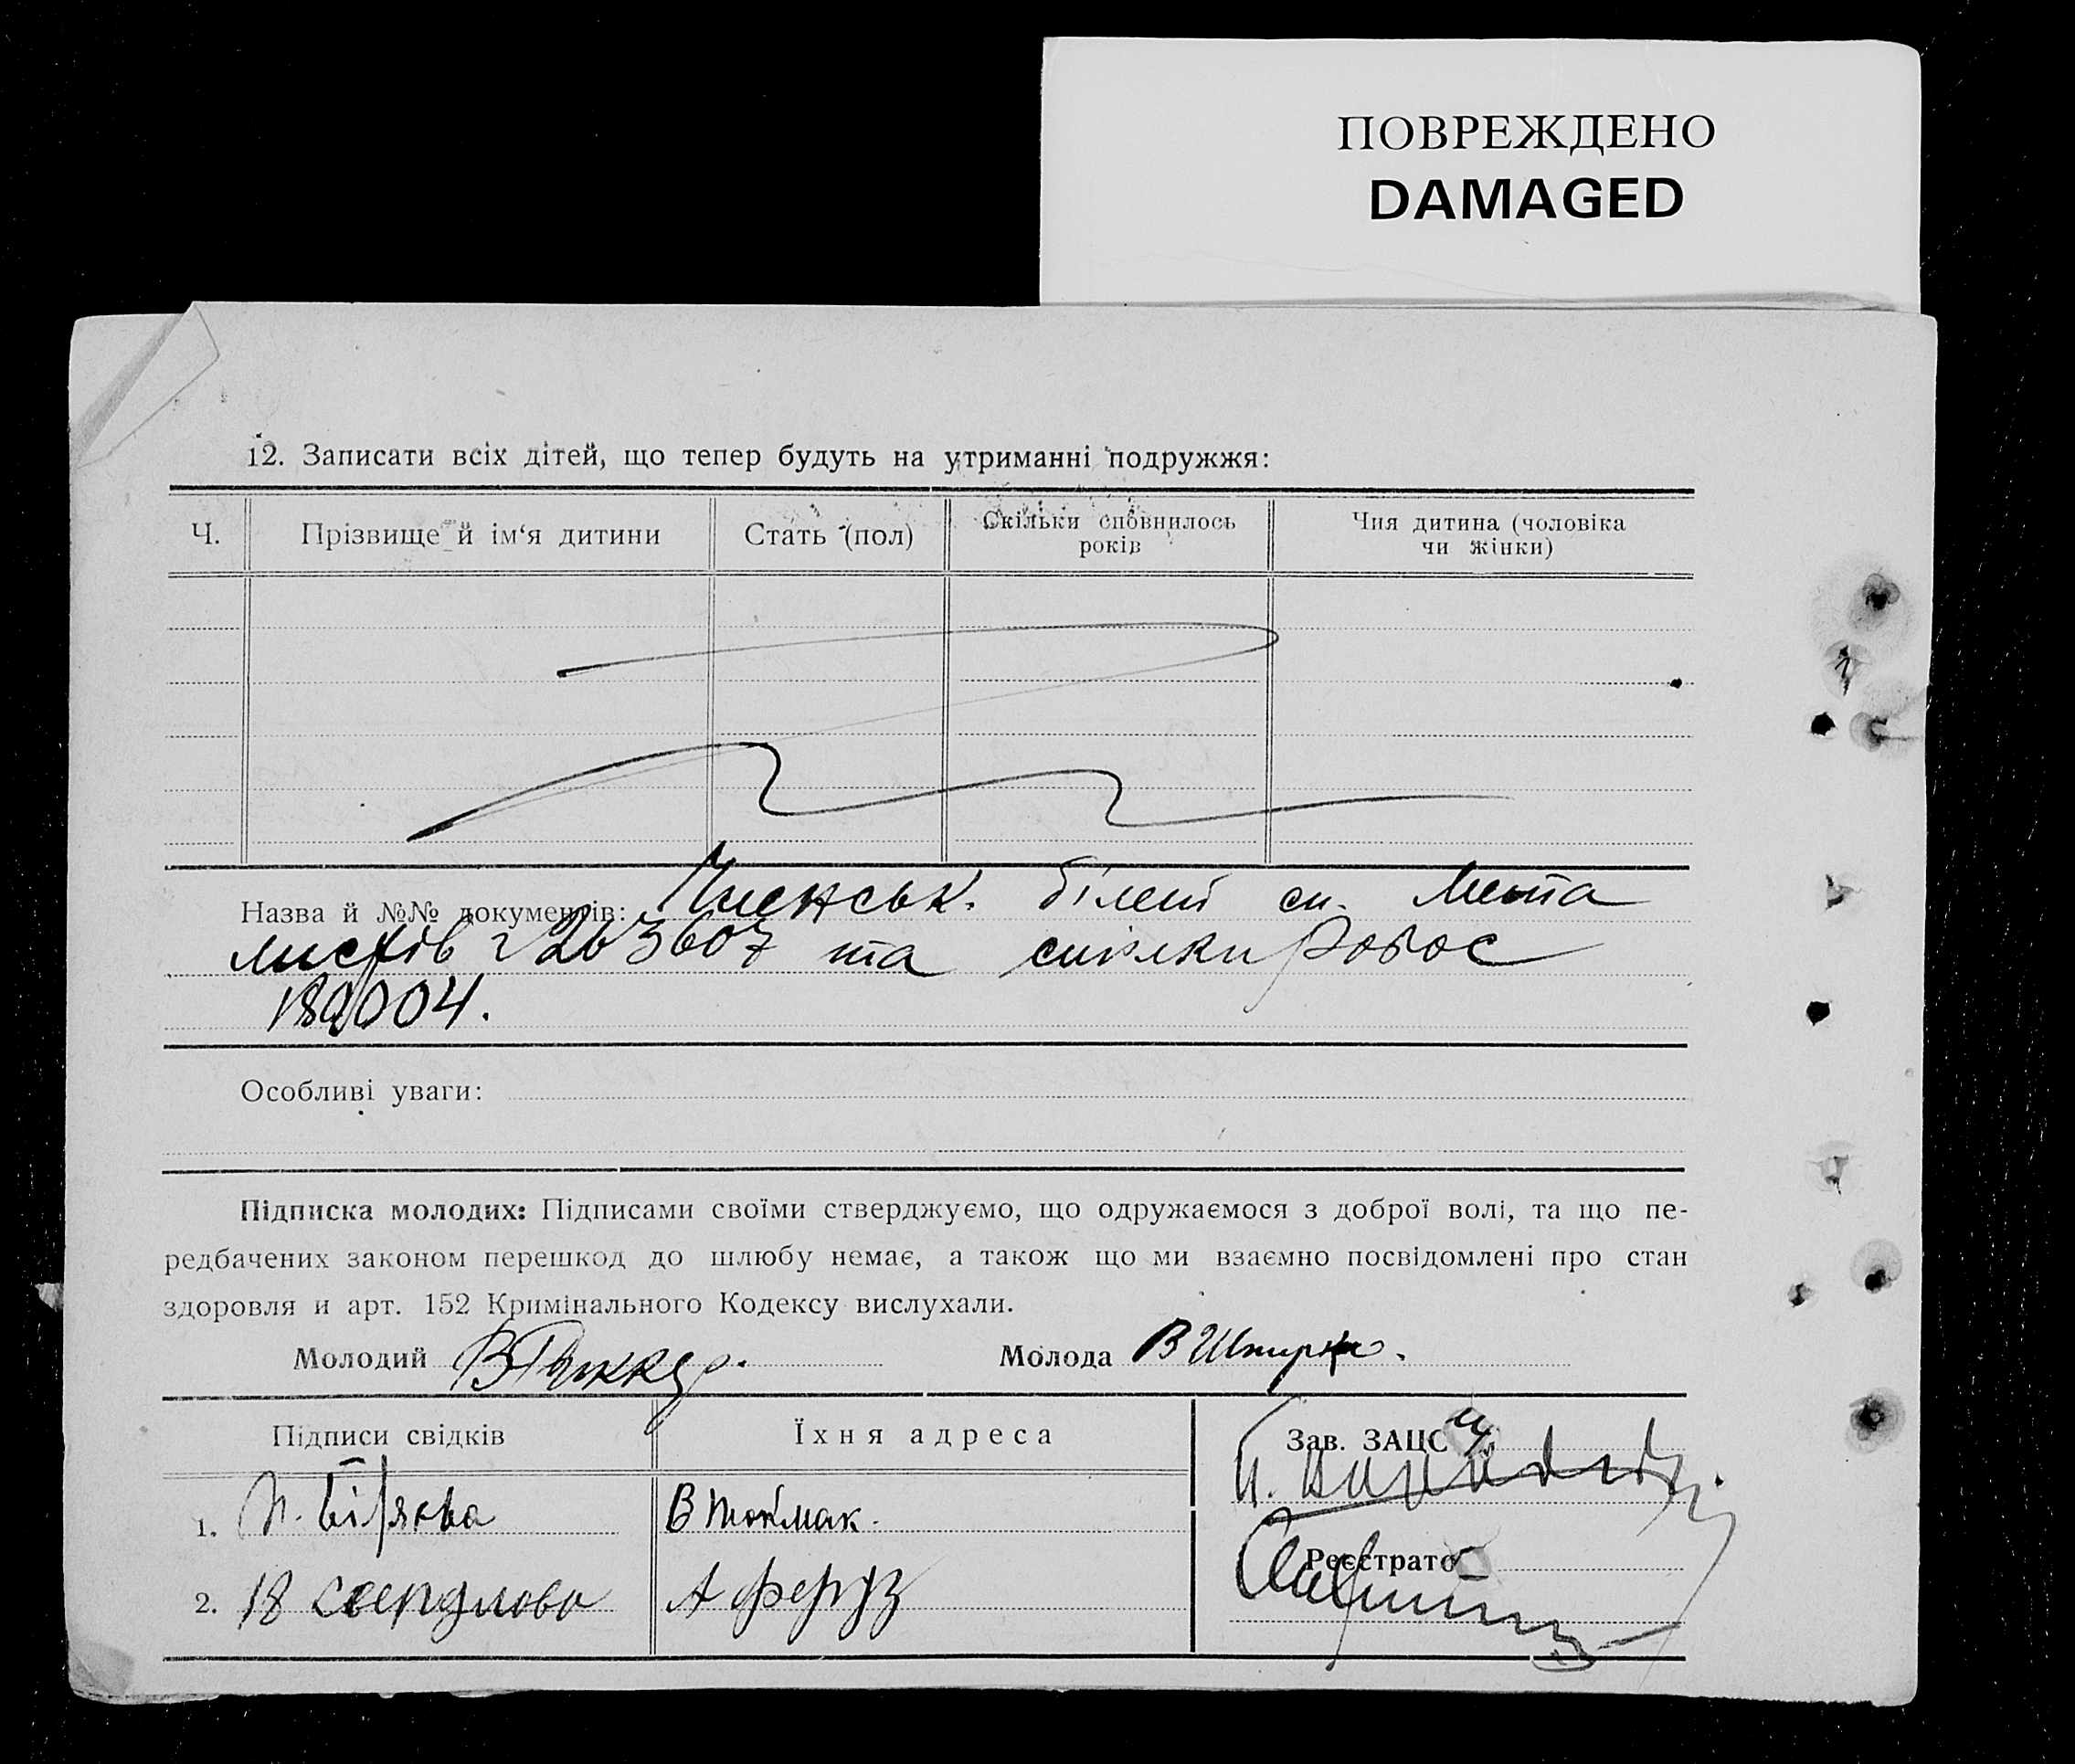 ПОВРЕЖДЕНО
DAMAGED
12. Записати всіх дітей, що тепер будуть на утриманні подружжя:
Ч. Прізвище й ім‘я дитини Стать (пол) Скільки сповнилось років Чия дитина (чоловіка чи жінки)
Назва й №№ документів: Членськ. білет сп. Мета
листів 263607 та спілки Робос
189004.
Особливі уваги:
Підписка молодих: Підписами своїми стверджуємо, що одружаємося з доброї волі, та що пе-
редбачених законом перешкод до шлюбу немає, а також що ми взаємно посвідомлені про стан
здоровля и арт. 152 Кримінального Кодексу вислухали.
Молодий Молода
Підписи свідків Їхня адреса Зав. ЗАЦС
1. В Токмак.
2. 18 Свердлова А
Реєстратор